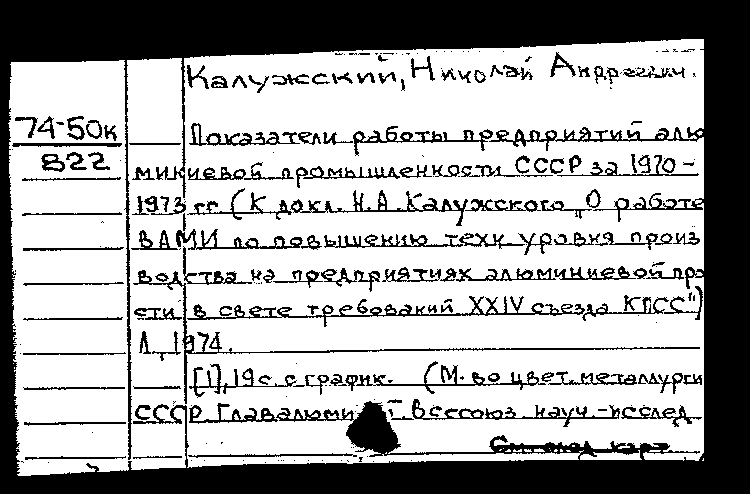 Калужский, Николай Андреевич.
74-50к
822
Показатели работы предприятий алю
миниевой промышленности СССР за 1970-
1973 гг. (К докл. Н.А. Калужского „О работе
ВАМИ по повышению техн уровня произ
водства на предприятиях алюминиевой про
сти в свете требований XXIV съезда КПСС")
Л., 1974.
[1], 19 с. с график. (М-во цвет. металлурги
СССР. Главалюми Всесоюз. науч.-исслед
См. след. карт.